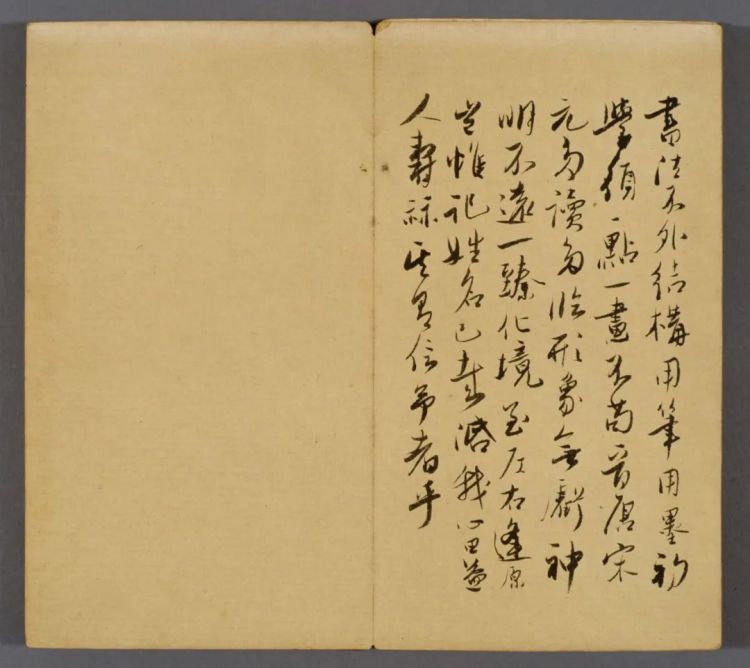 書法不外結構用筆用墨初
學須一點一畫不苟晉唐宋
元多讀多臨形象無虧神
明不遠一臻化境至左右逢原
豈惟記姓名已哉潛我心田益
人壽祿其有信予者乎